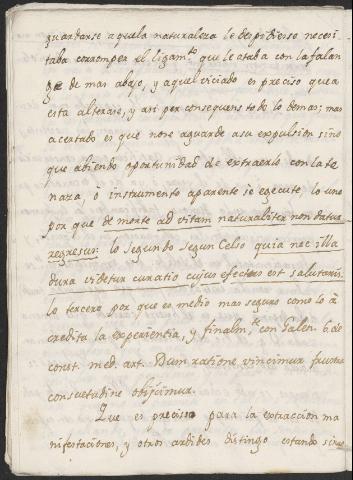 guardarse a que la naturaleza le despidiesse necesi
taba corromper el ligam.to que le ataba con la falan
ge de mas abajo, y aquel viciado es preciso que a
esta alterase, y asi per consequens todo lo demas; mas
acertado es que no se aguarde a su expulsion sino
que abiendo oportunidad de extraerlo con la te
naza, ò instrumento aparente se egecute, lo uno
por que de morte ad vitam naturaliter non datur
regresus: lo segundo segun Celso quia nec illa
dura videtur curatio cujus efectus est salutaris.
lo tercero por que es medio mas seguro como lo à
credita la experientia, y finalm.te con Galen. 6. de
const. med. art. Dum ratione vincimur frustra
consuetudine obijcimur.
Que es preciso para la extraccion ma
nifestaciones, y otros ardides distingo estando sin